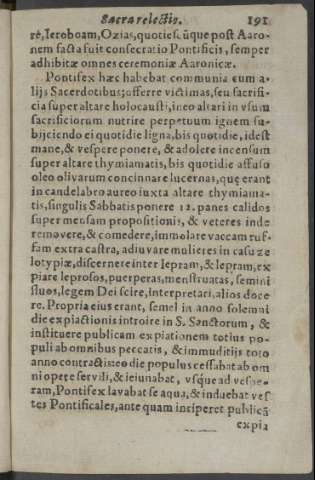 Sacra relectio. 191
ré, Ieroboam, Ozias, quotiescũque post Aaro-
nem facta fuit consecratio Pontificis, semper
adhibitæ omnes ceremoniæ Aaronicæ.
Pontifex hæc habebat communia cum a-
lijs Sacerdotibus; offerre victimas, seu sacrifi-
cia super altare holocausti, in eo altari in vsum
sacrificiorum nutrire perpetuum ignem su-
bijciendo ei quotidie ligna, bis quotidie, idest
mane, & vespere ponere, & adolere incensum
super altare thymiamatis, bis quotidie affuso
oleo olivarum concinnare lucernas, quę erant
in candelabro aureo iuxta altare thymiama-
tis, singulis Sabbatis ponere 12. panes calidos
super mensam propositionis, & veteres inde
removere, & comedere, immolare vaccam ruf-
fam extra castra, adiuvare mulieres in casu ze
lotypiæ, discernere inter lepram, & lepram, ex
piare leprosos, puerperas, menstruatas, semini
fluos, legem Dei scire, interpretari, alios doce
re. Propria eius erant, semel in anno solemni
die expiactionis introire in S. Sanctorum, &
instituere publicam expiationem totius po-
puli ab omnibus peccatis, & immuditijs toto
anno contractis: eo die populus cessabat ab om
ni opere servili, & ieiunabat, vsque ad vespe-
ram, Pontifex lavabat se aqua, & induebat ves
tes Pontificales, ante quam inciperet publicã
expia